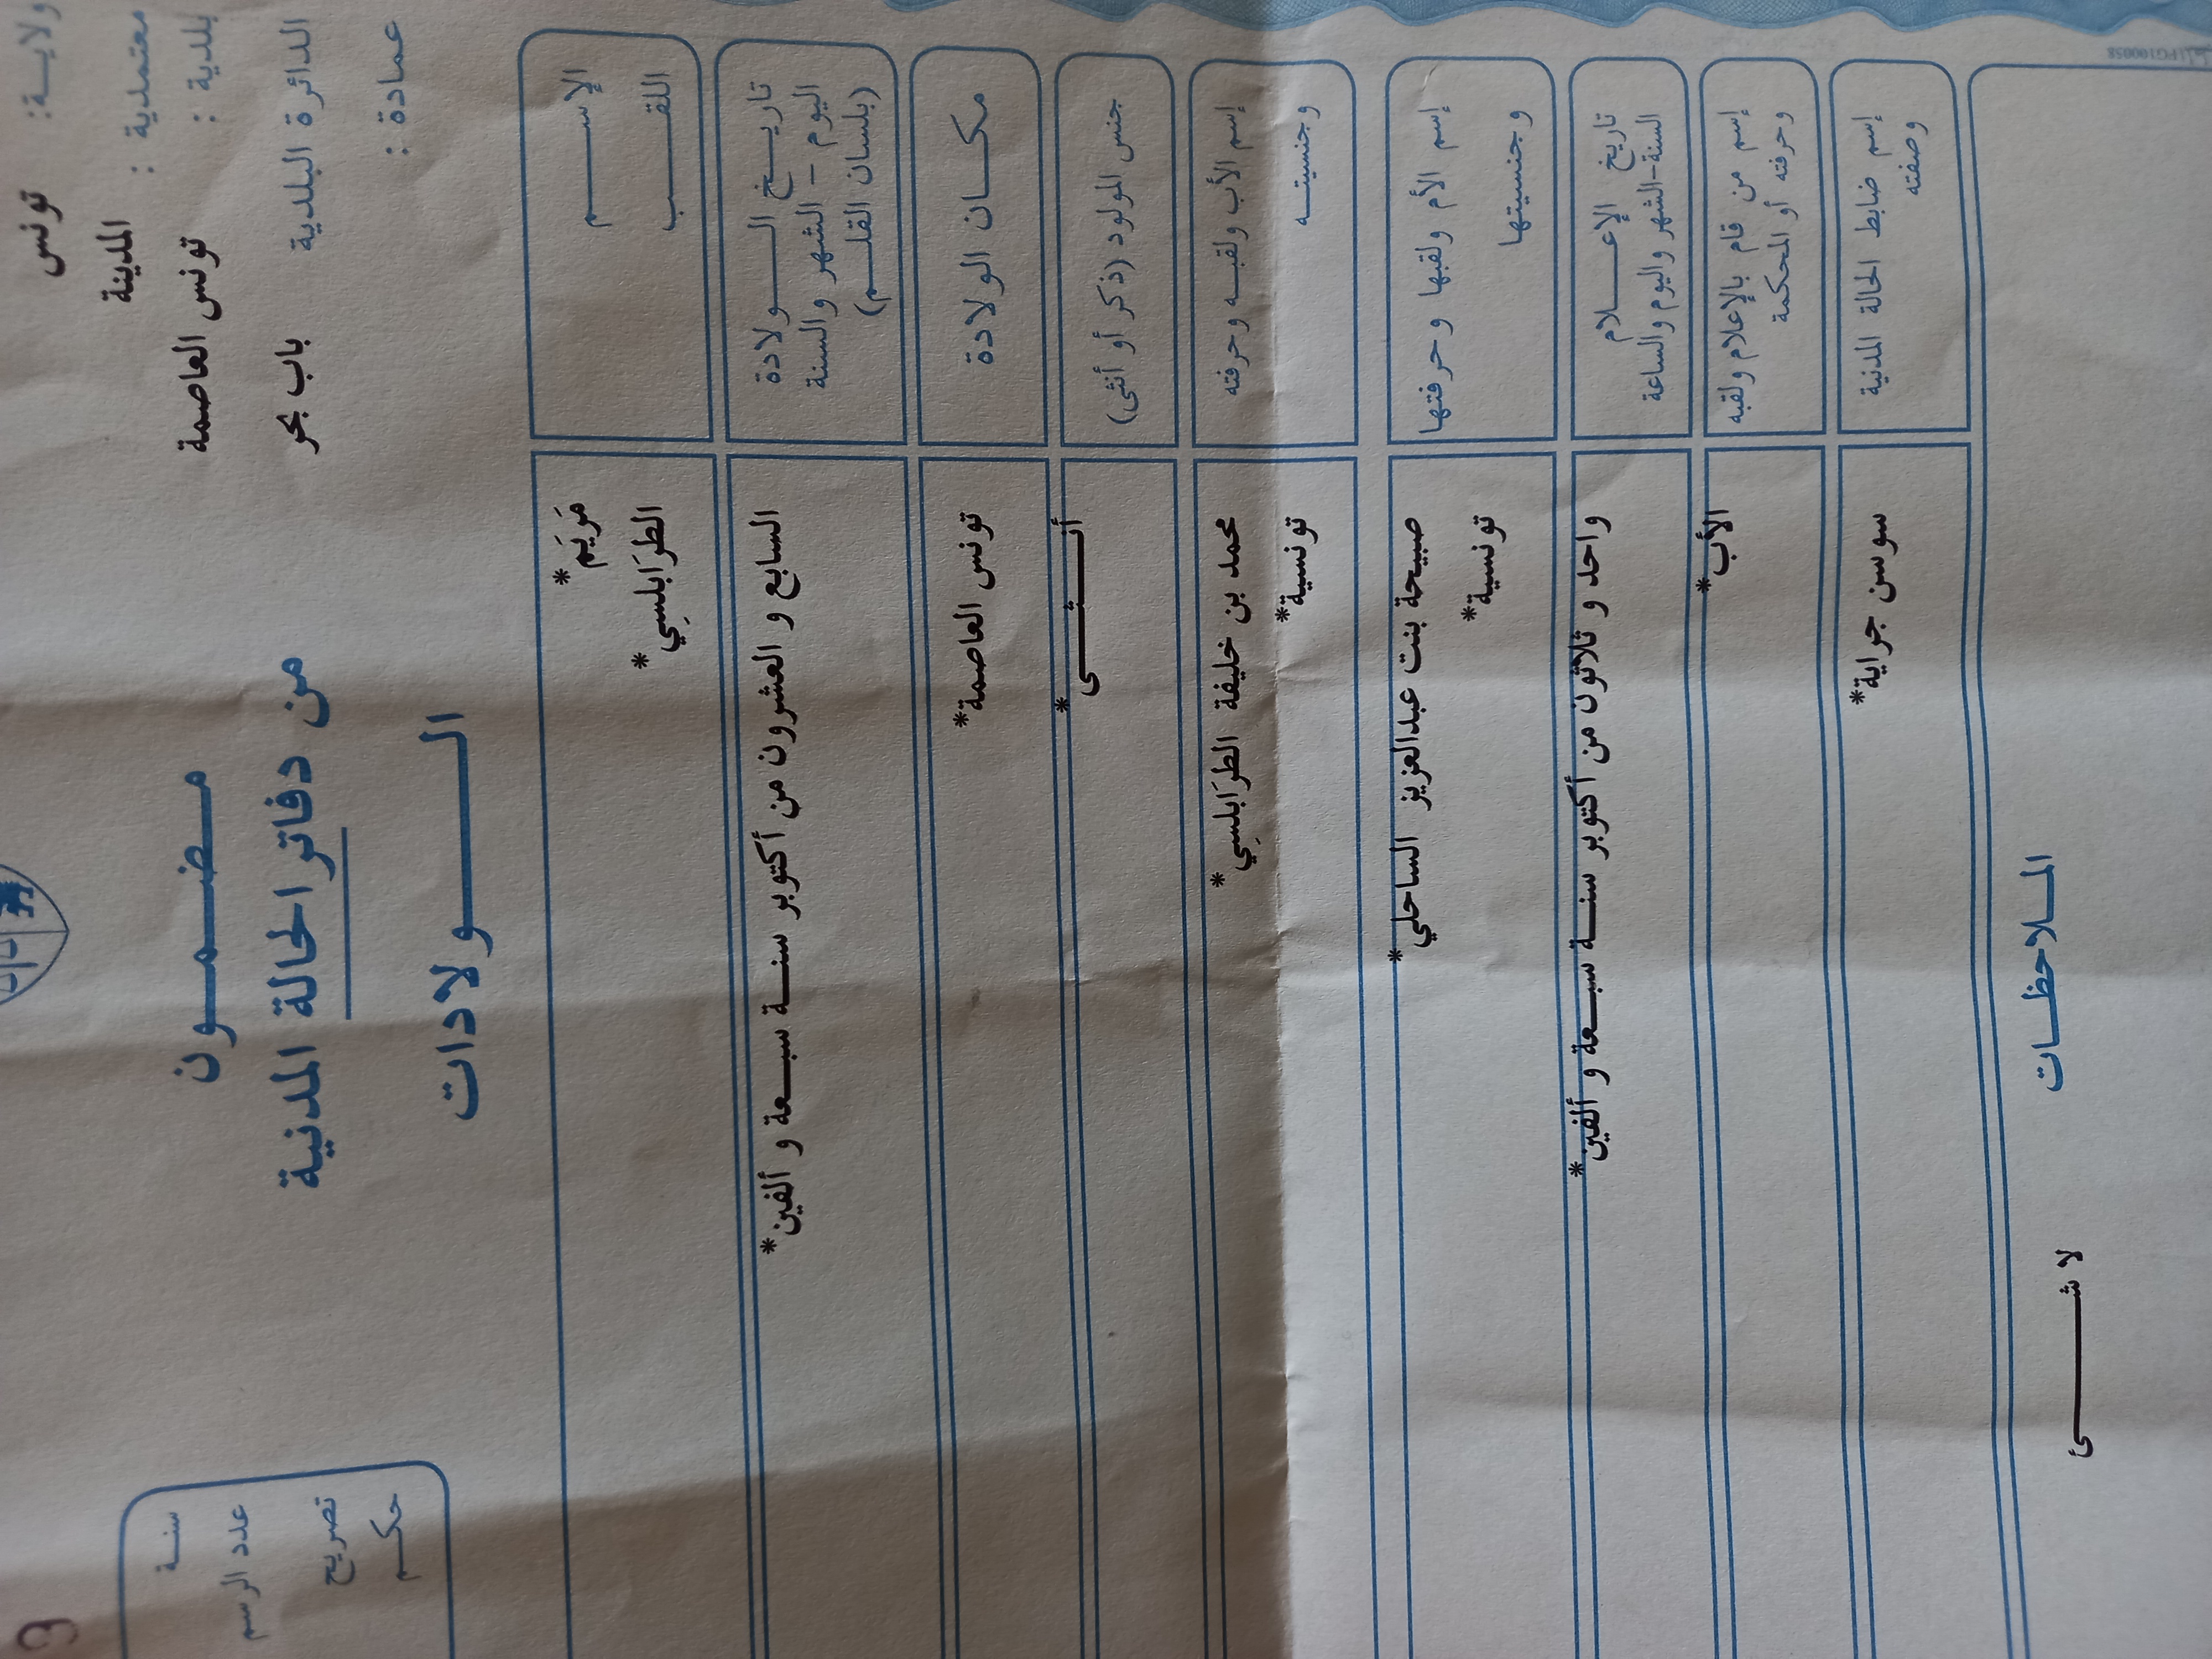 ولايـة: تونس
معتمدية : المدينة
بلدية : تونس العاصمة
الدائرة البلدية باب بحر
عمادة :
مضمـون
من دفاتر الحالة المدنية
الـولادات
سنـة
عدد الرسم
تصريح
حكـم
الإسـم مَريَم*
اللقـب الطرَابلسِي*
تاريـخ الـولادة
اليوم - الشهر والسنة
(بلسان القلـم)
السابع و العشرون من أكتوبر سنـة سبـعة و ألفين*
مكـان الولادة تونس العاصمة*
جنس المولود (ذكر أو أنثى) أنـثـى*
إسم الأب ولقبـه وحرفته محمد بن خليفة الطرَابلسِي*
وجنسيتـه تونسية*
إسم الأم ولقبها وحرفتها صبيحة بنت عبدالعزيز الساحلي*
وجنسيتها تونسية*
تاريخ الإعـلام
السنة-الشهر واليوم والساعة
واحد و ثلاثون من أكتوبر سنـة سبـعة و ألفين*
إسم من قام بالإعلام ولقبه الأب*
وحرفته أو المحكمة
إسم ضابط الحالة المدنية سوسن جراية*
وصفته
الملاحظـات
لا شـئ